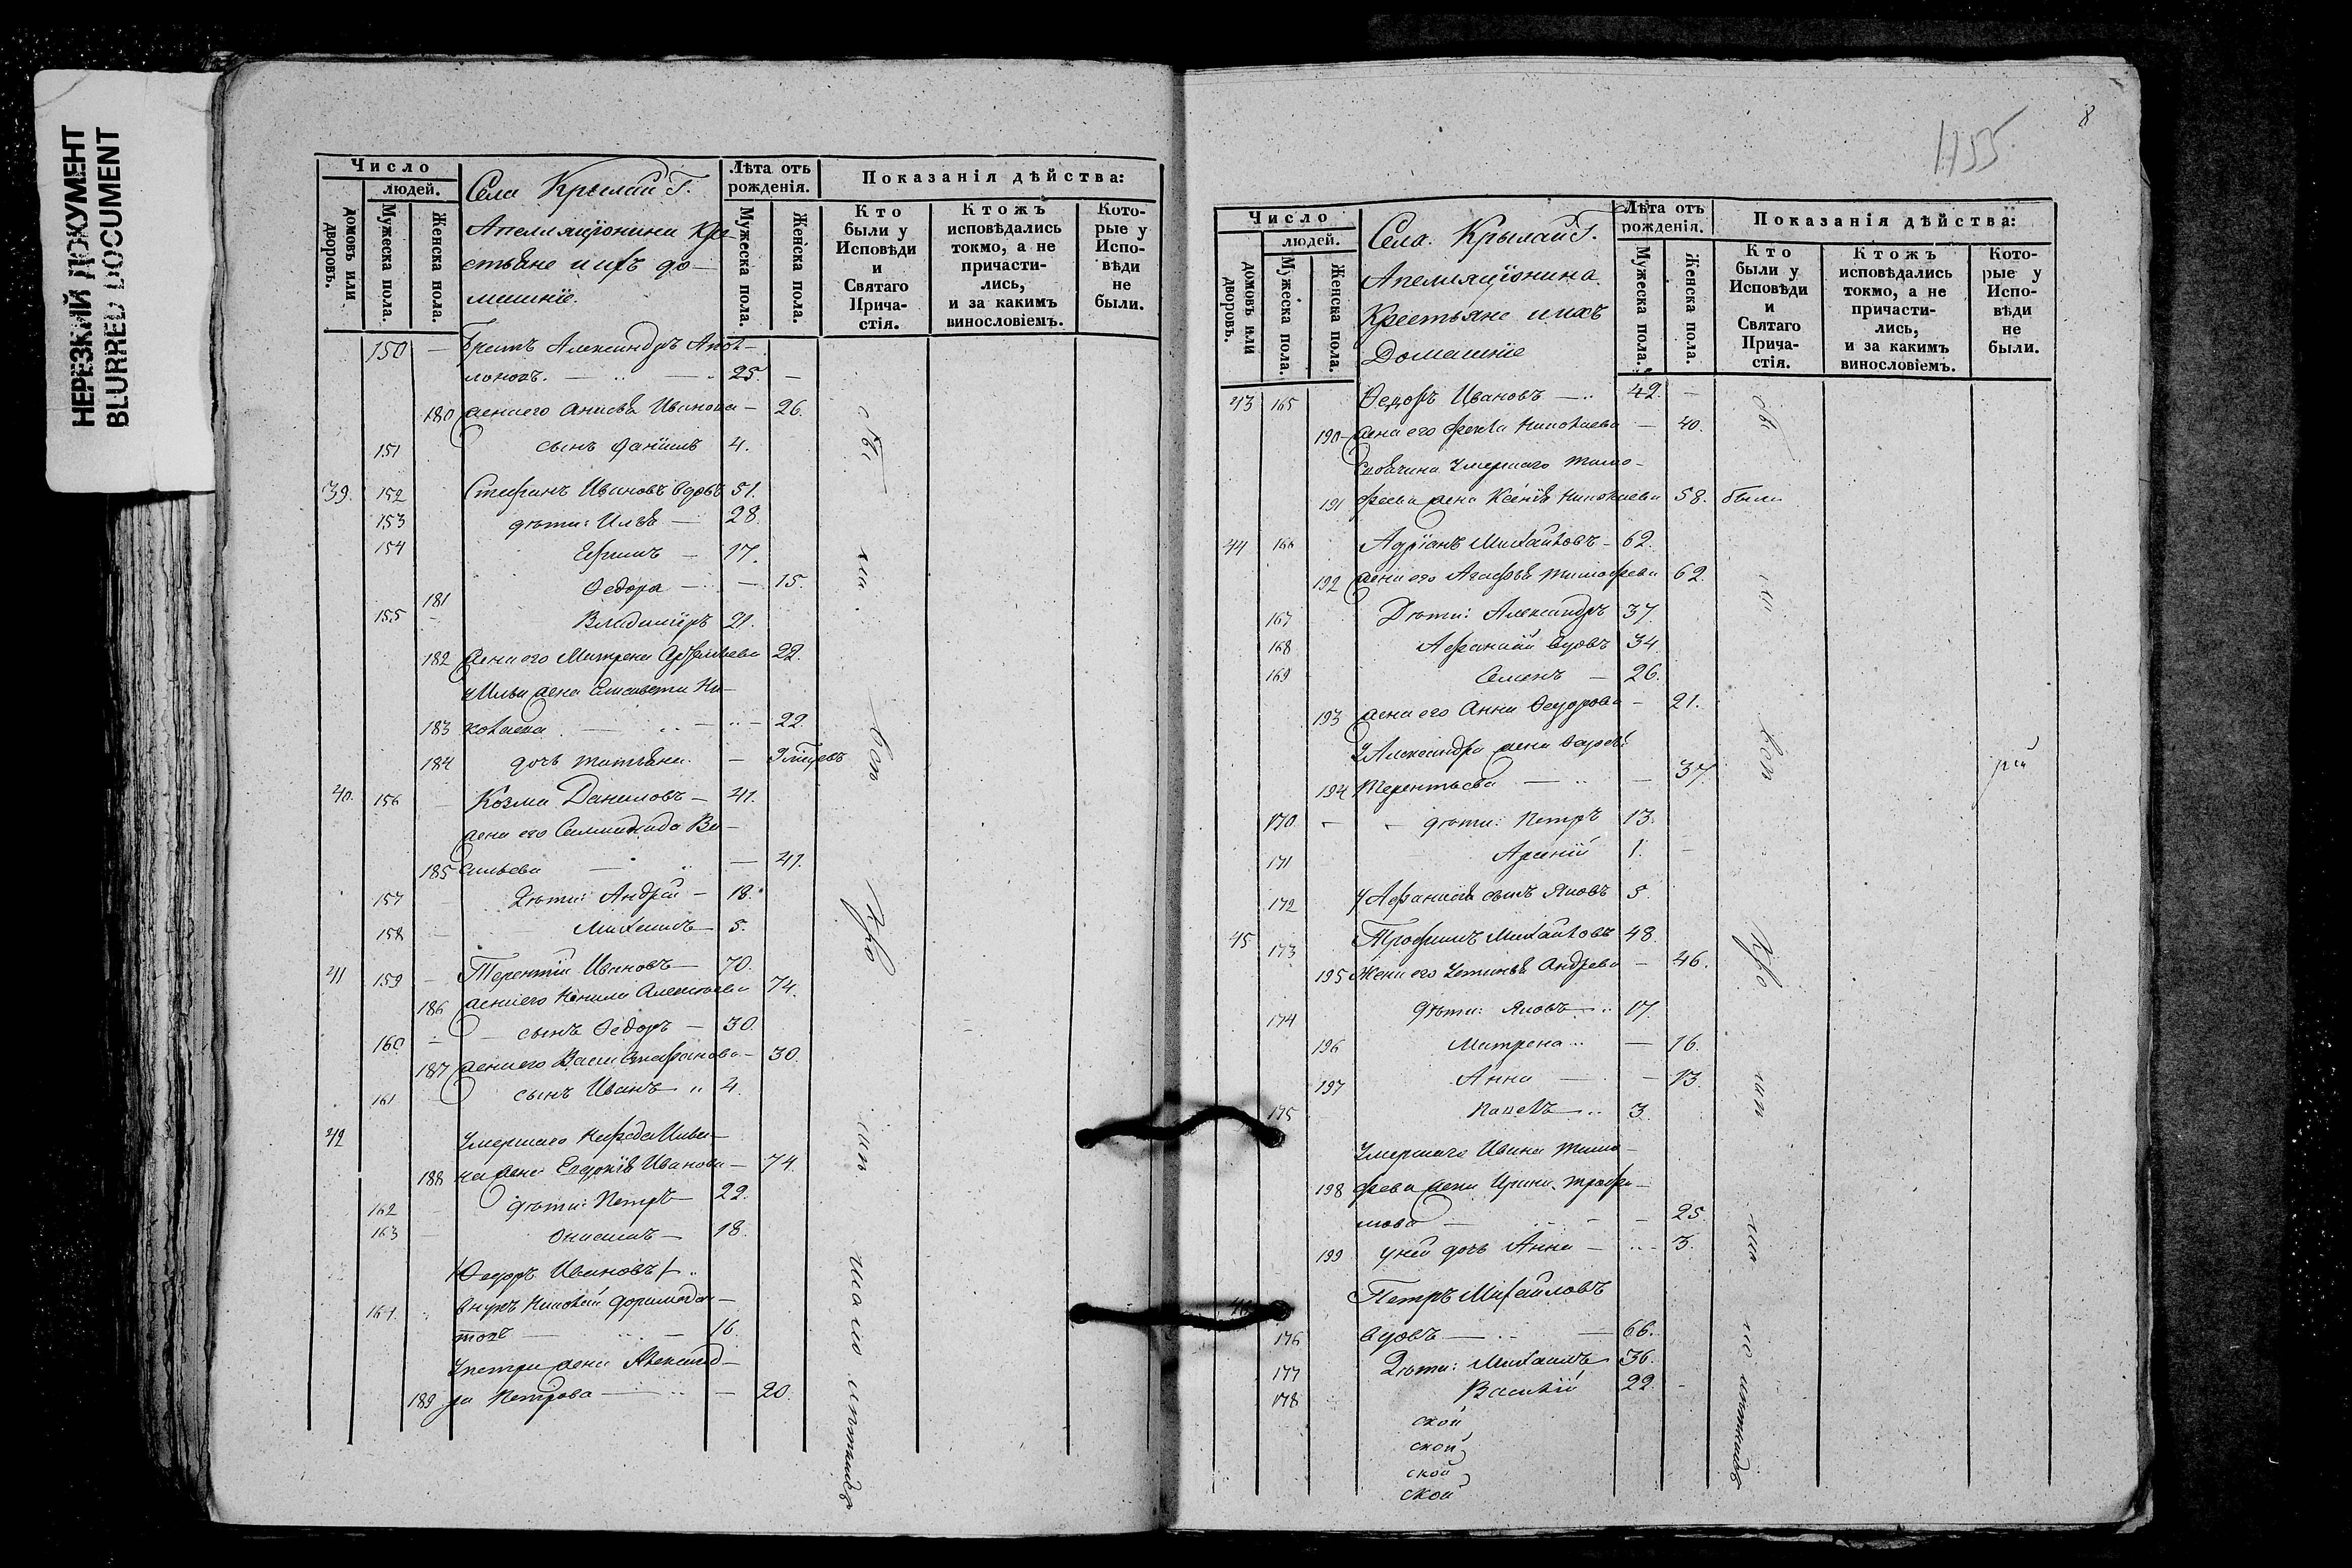 НЕРЕЗКИЙ ДОКУМЕНТ
BLURRED DOCUMENT
Число
людей.
домовъ или дворовъ.
Мужеска пола.
Женска пола.
Села Крылай Г.
крестьяне и ихъ до-
машніе.
Лѣта отъ рожденія.
Мужеска пола.
Женска пола.
Показанія дѣйства:
Кто были у Исповѣди и Святаго Прича-стія.
Ктожъ исповѣдались токмо, а не причасти-лись, и за какимъ винословіемъ.
Кото-рые у Испо-вѣди не были.
150 — Братъ Александръ Апол-
лоновъ. — 25. —
180 жена его Анисья Иванова — 26.
151 сынъ Даніилъ 4.
39. 152 Стефанъ Ивановъ вдовъ 51.
153 дѣти: Илья — 28
154 Ефимъ — 17.
181 Ѳедора — 15.
155 Владиміръ 21.
182 жена его Матрена 22.
у Ильи жена Елисавета Ни-
183 колаева — 22
184 дочь Татьяна —
40. 156 Козма Даниловъ — 41.
жена его Ва-
185 сильева — 41.
157 Дѣти: Андрей — 18.
158 Михаилъ 5.
41 159 Терентій Ивановъ — 70.
186 жена его Алексѣева 74.
160 сынъ Ѳедоръ — 30.
187 жена его Стефанова — 30.
161 сынъ Иванъ 4.
42 Умершаго
188 жена Евдокія Иванова — 74.
162 дѣти: Петръ 22.
163 Онисимъ — 18.
Ѳедоръ Ивановъ
164 внукъ Николай
16.
У Петра жена Александ-
189 ра Петрова — 20.
1155
8
Число
людей.
домовъ или дворовъ.
Мужеска пола.
Женска пола.
Села Крылай Г.
Крестьяне и ихъ
Домашніе
Лѣта отъ рожденія.
Мужеска пола.
Женска пола.
Показанія дѣйства:
Кто были у Исповѣди и Святаго Прича-стія.
Ктожъ исповѣдались токмо, а не причасти-лись, и за какимъ винословіемъ.
Кото-рые у Испо-вѣди не были.
43 165 Ѳедоръ Ивановъ — 42. —
190 жена его Ѳекла Николаева — 40.
умершаго Тимо-
191 феева жена Ксенія Николаева 58. были
44 166 Адріанъ Михайловъ — 62.
192 жена его Агафья Тимофеева 62.
167 Дѣти: Александръ 37.
168 Афанасій вдовъ 34.
169 Семенъ — 26.
193 жена его Анна Ѳедорова — 21.
У Александра жена Дарья
194 Терентьева — 37
170 дѣти: Петръ 13.
171 Арсеній 1. —
172 У Афанасія сынъ Яковъ 5.
45 173 Трофимъ Михайловъ 48.
195 жена его Устинья Андреева — 46.
174 Дѣти: Яковъ 17.
196 Матрена — 16.
197 Анна — 13.
175 Павелъ 3.
Умершаго Ивана Тимо-
198 феева жена Ирина Трофи-
мова — 25.
199 у ней дочь Анна — 3.
Петръ Михайловъ
176 вдовъ — 66.
177 Дѣти: Михаилъ 36.
178 Василій 22. —
ской
ской
ской
ской